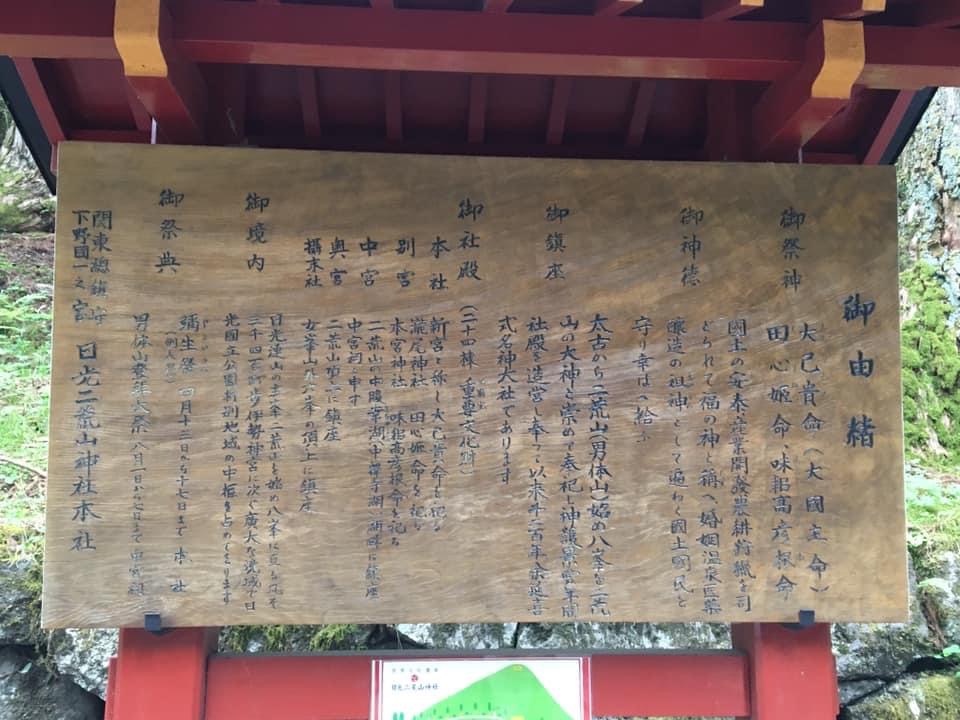 御由緒
御祭神
大己貴命(大國主命)
田心姫命、味耜高彦根命
御神徳
國土の安泰・産業開發農耕狩獵を司
どられて福の神と稱へ婚姻温泉医薬
醸造の祖神として遍わく國土國民を
守り幸はへ給ふ
御鎮座
太古から二荒山(男体山)始め八峯を二荒
山の大神と崇めて奉祀し神護景雲年間
社殿を造営し奉って以来千二百年余延喜
式名神大社であります
御社殿
(二十四棟 重要文化財)
本社
新宮と稱し大己貴命を祀る
別宮
瀧尾神社 田心姫命を祀る
本宮神社 味耜高彦根命を祀る
中宮
二荒山の中腹 湖(中禪寺湖)湖畔に鎮座
中宮祠と申す
奥宮
二荒山頂上に鎮座
攝末社
女峯山外八峯の頂上に鎮座
御境内
日光連山の主峯二荒山を始め八峯に亘る凡そ
三千四百町歩伊勢神宮に次ぐ廣大な境域で日
光國立公園特別地域の中枢を占めております
御祭典
弥生祭 四月十三日から十七日まで 本社
(例大祭)
男体山登拝大祭 八月一日から七日まで 中宮祠
関東総鎮守
下野國一之宮
日光二荒山神社本社
日光二荒山神社